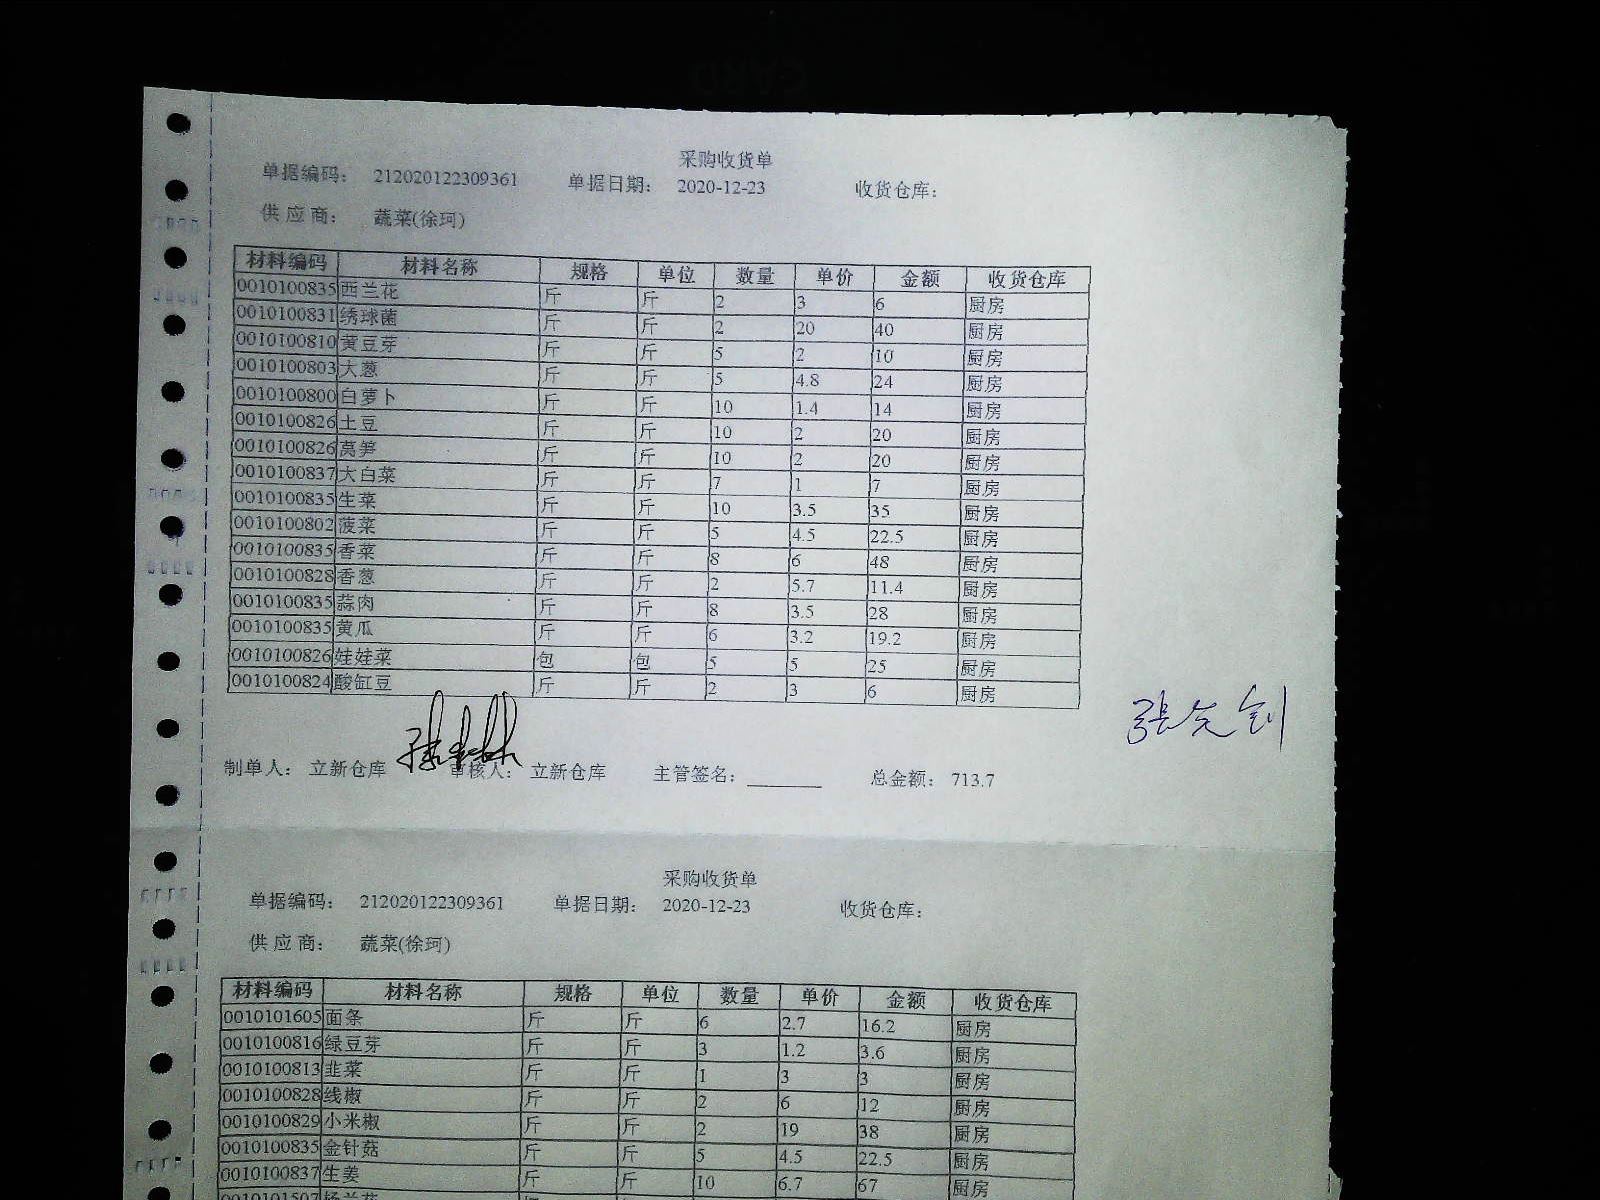 采购收货单
单据编码： 212020122309361 单据日期： 2020-12-23 收货仓库：
供应商： 蔬菜(徐珂)
材料编码 材料名称 规格 单位 数量 单价 金额 收货仓库
0010100835 西兰花 斤 斤 2 3 6 厨房
0010100831 绣球菌 斤 斤 2 20 40 厨房
0010100810 黄豆芽 斤 斤 5 2 10 厨房
0010100803 大葱 斤 斤 5 4.8 24 厨房
0010100800 白萝卜 斤 斤 10 1.4 14 厨房
0010100826 土豆 斤 斤 10 2 20 厨房
0010100826 莴笋 斤 斤 10 2 20 厨房
0010100837 大白菜 斤 斤 7 1 7 厨房
0010100835 生菜 斤 斤 10 3.5 35 厨房
0010100802 菠菜 斤 斤 5 4.5 22.5 厨房
0010100835 香菜 斤 斤 8 6 48 厨房
0010100828 香葱 斤 斤 2 5.7 11.4 厨房
0010100835 蒜肉 斤 斤 8 3.5 28 厨房
0010100835 黄瓜 斤 斤 6 3.2 19.2 厨房
0010100826 娃娃菜 包 包 5 5 25 厨房
0010100824 酸缸豆 斤 斤 2 3 6 厨房
张先剑
制单人： 立新仓库 审核人： 立新仓库 主管签名： 总金额： 713.7
采购收货单
单据编码： 212020122309361 单据日期： 2020-12-23 收货仓库：
供应商： 蔬菜(徐珂)
材料编码 材料名称 规格 单位 数量 单价 金额 收货仓库
0010101605 面条 斤 斤 6 2.7 16.2 厨房
0010100816 绿豆芽 斤 斤 3 1.2 3.6 厨房
0010100813 韭菜 斤 斤 1 3 3 厨房
0010100828 线椒 斤 斤 2 6 12 厨房
0010100829 小米椒 斤 斤 2 19 38 厨房
0010100835 金针菇 斤 斤 5 4.5 22.5 厨房
0010100837 生姜 斤 斤 10 6.7 67 厨房